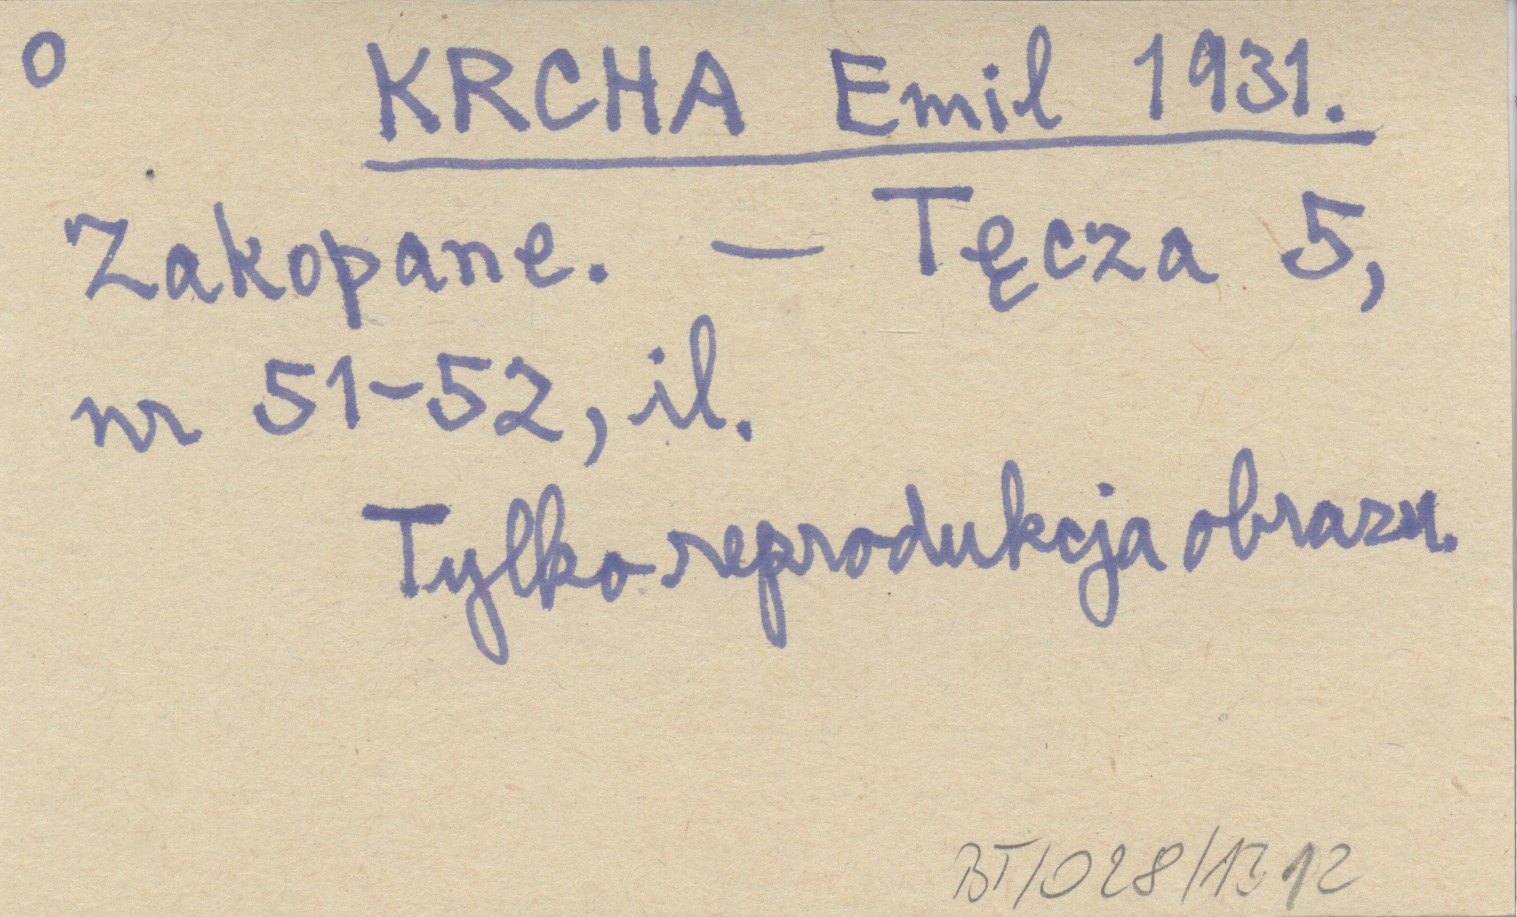 O
KRCHA Emil 1931.
Zakopane. — Tęcza 5,
nr 51-52, il.
Tylko reprodukcja obrazu.
BT/028/1312